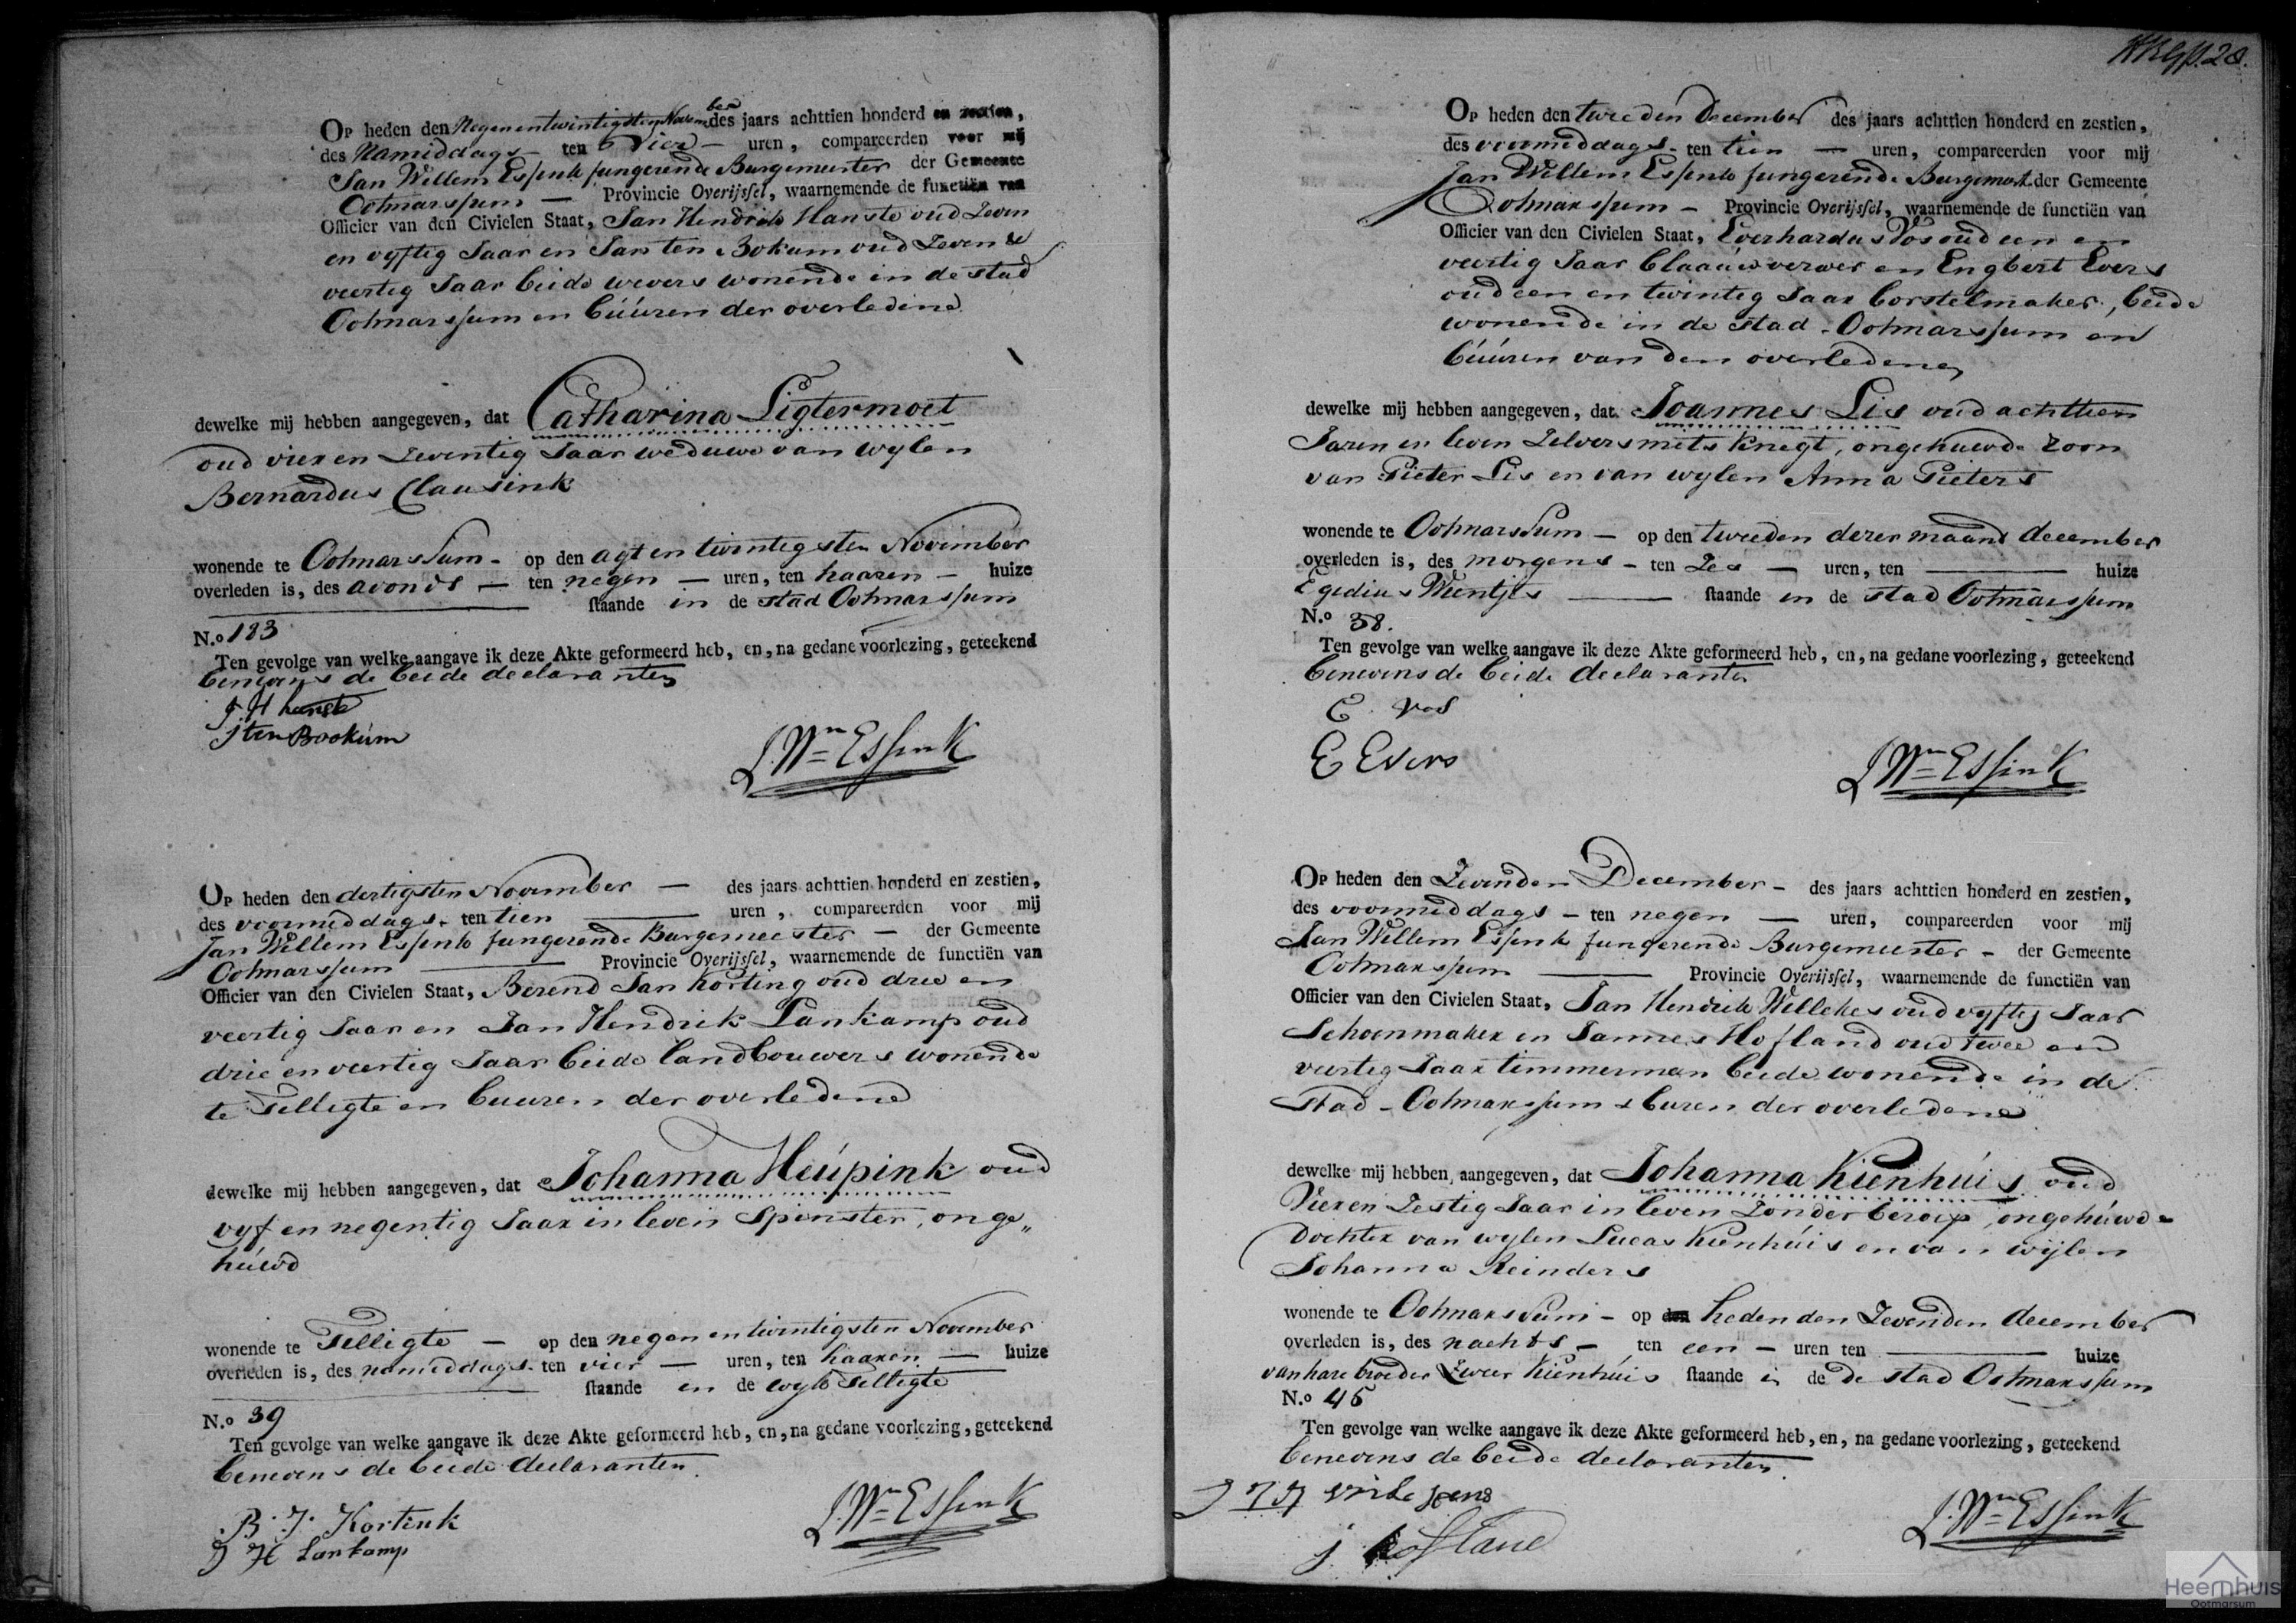 Op heden den Negenentwintigsten November des jaars achttien honderd en zestien,
des Namiddags ten vier uren, compareerden voor mij
Jan Willem Essink fungerende Burgemeester der Gemeente
Ootmarssum Provincie Overijssel, waarnemende de functiën van
Officier van den Civielen Staat, Jan Hendrik Hanste oud Zeven
en vyftig Jaar en Jan ten Bokum oud Zeven &
veertig Jaar beide wevers wonende in de stad
Ootmarssum en büüren der overledene
dewelke mij hebben aangegeven, dat Catharina Ligtermoet
oud vier en Zeventig Jaar weduwe van wylen
Bernardus Clausink
wonende te Ootmarssum - op den agt en twintigsten November
overleden is, des avonds - ten negen - uren, ten haaren - huize
staande in de stad Ootmarssum
N.o 183
Ten gevolge van welke aangave ik deze Akte geformeerd heb, en, na gedane voorlezing, geteekend
benevens de beide declaranten
J. H hanste
J ten Booküm
J. Wm Essink
Op heden den dertigsten November - des jaars achttien honderd en zestien,
des voormiddags - ten tien uren, compareerden voor mij
Jan Willem Essink fungerende Burgemeester - der Gemeente
Ootmarssum Provincie Overijssel, waarnemende de functiën van
Officier van den Civielen Staat, Berend Jan Korting oud drie en
veertig Jaar en Jan Hendrik Lankamp oud
drie en veertig Jaar beide landbouwers wonende
te Tilligte en buuren der overledene
dewelke mij hebben aangegeven, dat Johanna Heúpink oud
vyf en negentig Jaar in leven Spinster, onge„
húwd
wonende te Tilligte - op den negen en twintigsten November
overleden is, des namiddags ten vier - uren, ten haaren - huize
staande in de wyk Tilligte
N.o 39
Ten gevolge van welke aangave ik deze Akte geformeerd heb, en, na gedane voorlezing, geteekend
benevens de beide declaranten.
B. J. Kortink
J H Lankamp
J. Wm Essink
28.
Op heden den tweeden December des jaars achttien honderd en zestien,
des voormiddags - ten tien - uren, compareerden voor mij
Jan Willem Essink fungerende Burgemest. der Gemeente
Ootmarssum - Provincie Overijssel, waarnemende de functiën van
Officier van den Civielen Staat, Everhardus Vos oud een en
veertig Jaar blaauwverwer en Engbert Evers
oud een en twintig Jaar borstelmaker, beide
wonende in de stad - Ootmarssum en
büüren van den overledenen
dewelke mij hebben aangegeven, dat Joannes Lis oud achttien
Jaren in leven Zelversmets Knegt, ongehuwde zoon
van Pieter Lis en van wylen Anna Pieters
wonende te Ootmarssum - op den tweeden dezer maand december
overleden is, des morgens - ten Zes - uren, ten huize
Egedius Weentjes staande in de stad Ootmarssum
N.o 38.
Ten gevolge van welke aangave ik deze Akte geformeerd heb, en, na gedane voorlezing, geteekend
benevens de beide declaranten
E. Vos
E Evers
J Wm Essink
Op heden den Zevenden December - des jaars achttien honderd en zestien,
des voormiddags - ten negen - uren, compareerden voor mij
Jan Willem Essink fungerende Burgemeester - der Gemeente
Ootmarssum Provincie Overijssel, waarnemende de functiën van
Officier van den Civielen Staat, Jan Hendrik Willekes oud vyftig Jaar
Schoenmaker en Jannes Hofland oud twee en
veertig Jaar timmerman beide wonende in de
stad - Ootmarssum & buren der overledene
dewelke mij hebben aangegeven, dat Johanna Kienhúis oud
Vier en Zestig Jaar in leven Zonder beroep, ongehúwde
dochter van wylen Lucas Kienhúis en van wijlen
Johanna Reinders
wonende te Ootmarssum - op heden den Zevenden december
overleden is, des nachts - ten een - uren ten huize
van hare broeder Zweer Kienhúis staande in de de stad Ootmarssum
N.o 45
Ten gevolge van welke aangave ik deze Akte geformeerd heb, en, na gedane voorlezing, geteekend
benevens de beide declaranten.
j hofland
J. Wm Essink
Heemhuis
Ootmarsum